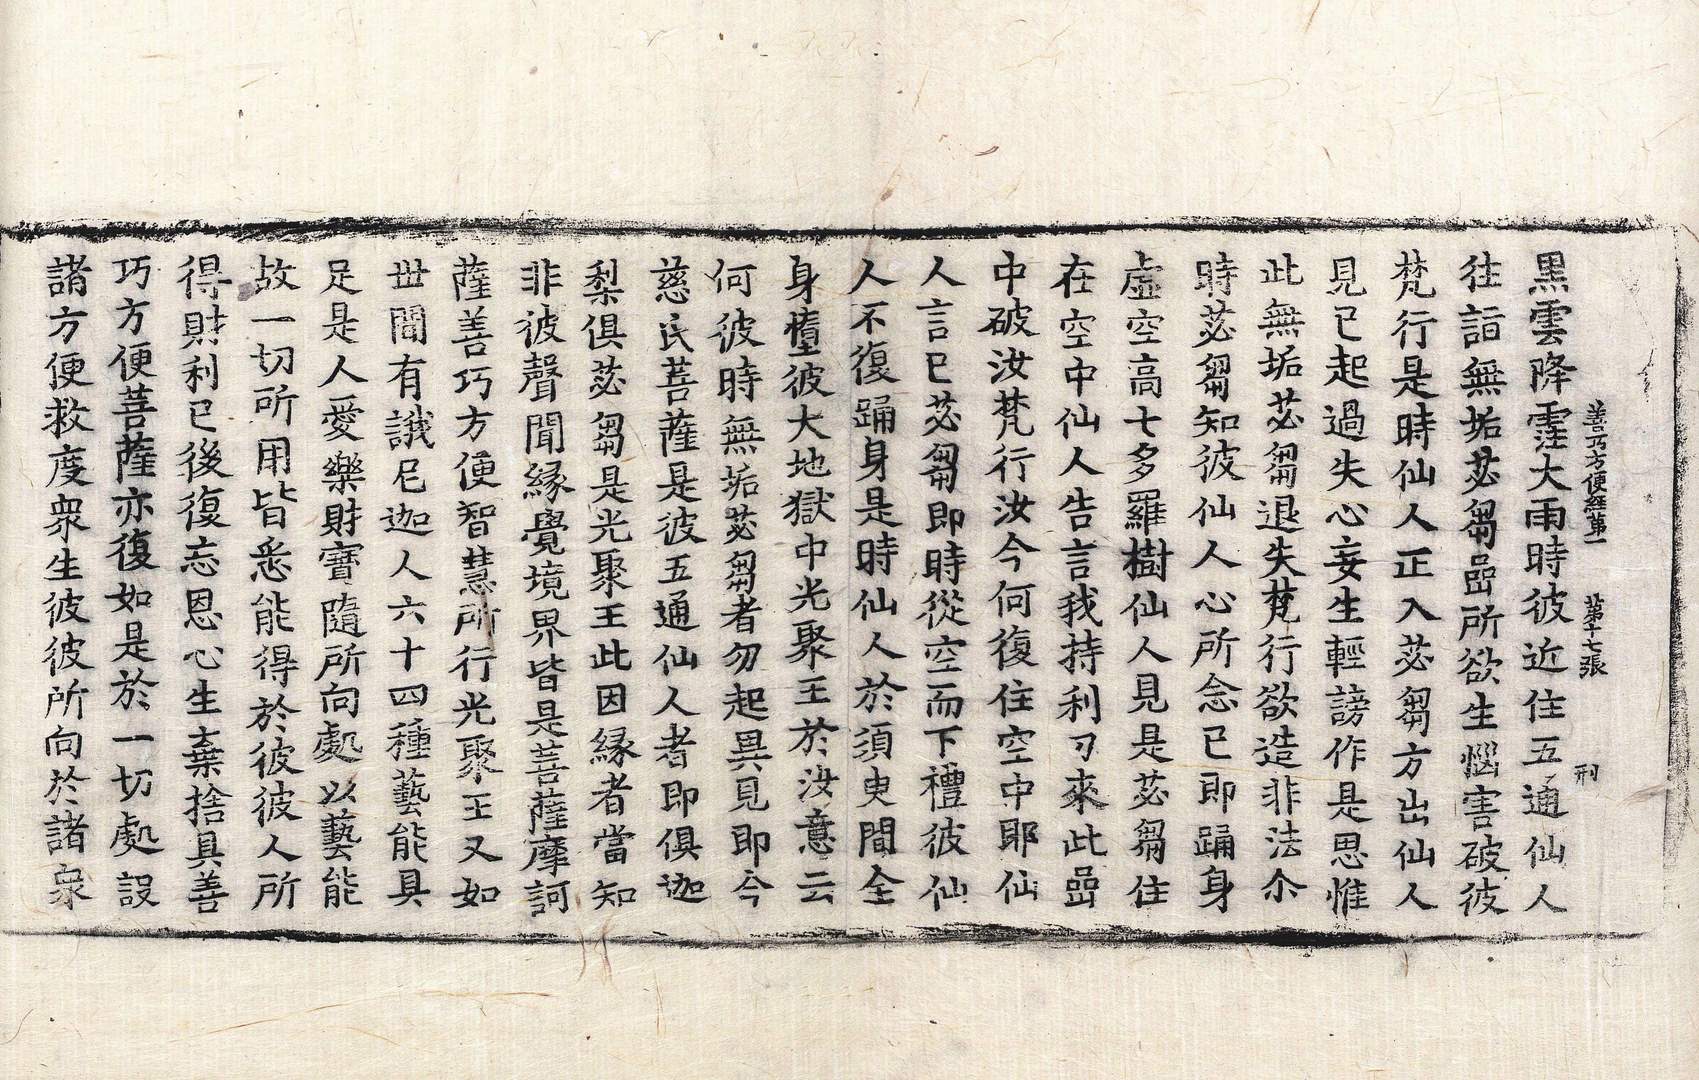 善巧方便經第一　第十七張　刑
黑雲降霔大雨時彼近住五通仙人
往詣無垢苾芻嵒所欲生惱害破彼
梵行是時仙人正入苾芻方出仙人
見已起過失心妄生輕謗作是思惟
此無垢苾芻退失梵行欲造非法尒
時苾芻知彼仙人心所念已即踊身
虛空高七多羅樹仙人見是苾芻住
在空中仙人告言我持利刃來此嵒
中破汝梵行汝今何復住空中耶仙
人言已苾芻即時從空而下禮彼仙
人不復踊身是時仙人於須臾間全
身墮彼大地獄中光聚王於汝意云
何彼時無垢苾芻者勿起異見即今
慈氏菩薩是彼五通仙人者即俱迦
梨俱苾芻是光聚王此因緣者當知
非彼聲聞緣覺境界皆是菩薩摩訶
薩善巧方便智慧所行光聚王又如
世間有誐尼迦人六十四種藝能具
足是人愛樂財寶隨所向處以藝能
故一切所用皆悉能得於彼彼人所
得財利已後復忘恩心生棄捨具善
巧方便菩薩亦復如是於一切處設
諸方便救度衆生彼彼所向於諸衆